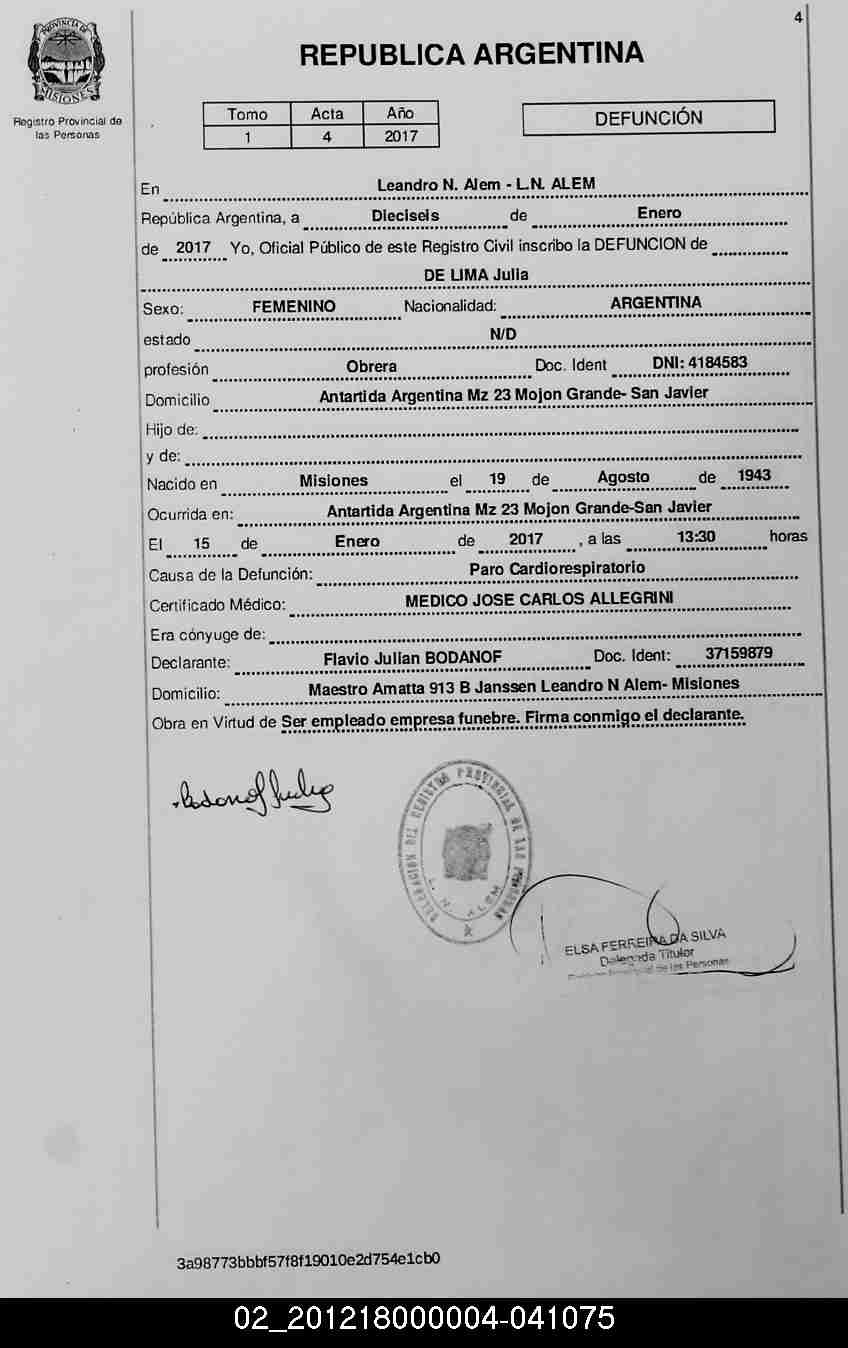 4
PROVINCIA DE
MISIONES
Registro Provincial de
las Personas
REPUBLICA ARGENTINA
Tomo Acta Año
1 4 2017
DEFUNCIÓN
En Leandro N. Alem - L.N. ALEM
República Argentina, a Dieciseis de Enero
de 2017 Yo, Oficial Público de este Registro Civil inscribo la DEFUNCION de
DE LIMA Julia
Sexo: FEMENINO Nacionalidad: ARGENTINA
estado N/D
profesión Obrera Doc. Ident DNI: 4184583
Domicilio Antartida Argentina Mz 23 Mojon Grande- San Javier
Hijo de:
y de:
Nacido en Misiones el 19 de Agosto de 1943
Ocurrida en: Antartida Argentina Mz 23 Mojon Grande-San Javier
El 15 de Enero de 2017 , a las 13:30 horas
Causa de la Defunción: Paro Cardiorespiratorio
Certificado Médico: MEDICO JOSE CARLOS ALLEGRINI
Era cónyuge de:
Declarante: Flavio Julian BODANOF Doc. Ident: 37159879
Domicilio: Maestro Amatta 913 B Janssen Leandro N Alem- Misiones
Obra en Virtud de Ser empleado empresa funebre. Firma conmigo el declarante.
DELEGACION DEL REGISTRO PROVINCIAL DE LAS PERSONAS
L. N. ALEM
ELSA FERREIRA DA SILVA
Delegada Titular
de las Personas
3a98773bbbf57f8f19010e2d754e1cb0
02_201218000004-041075